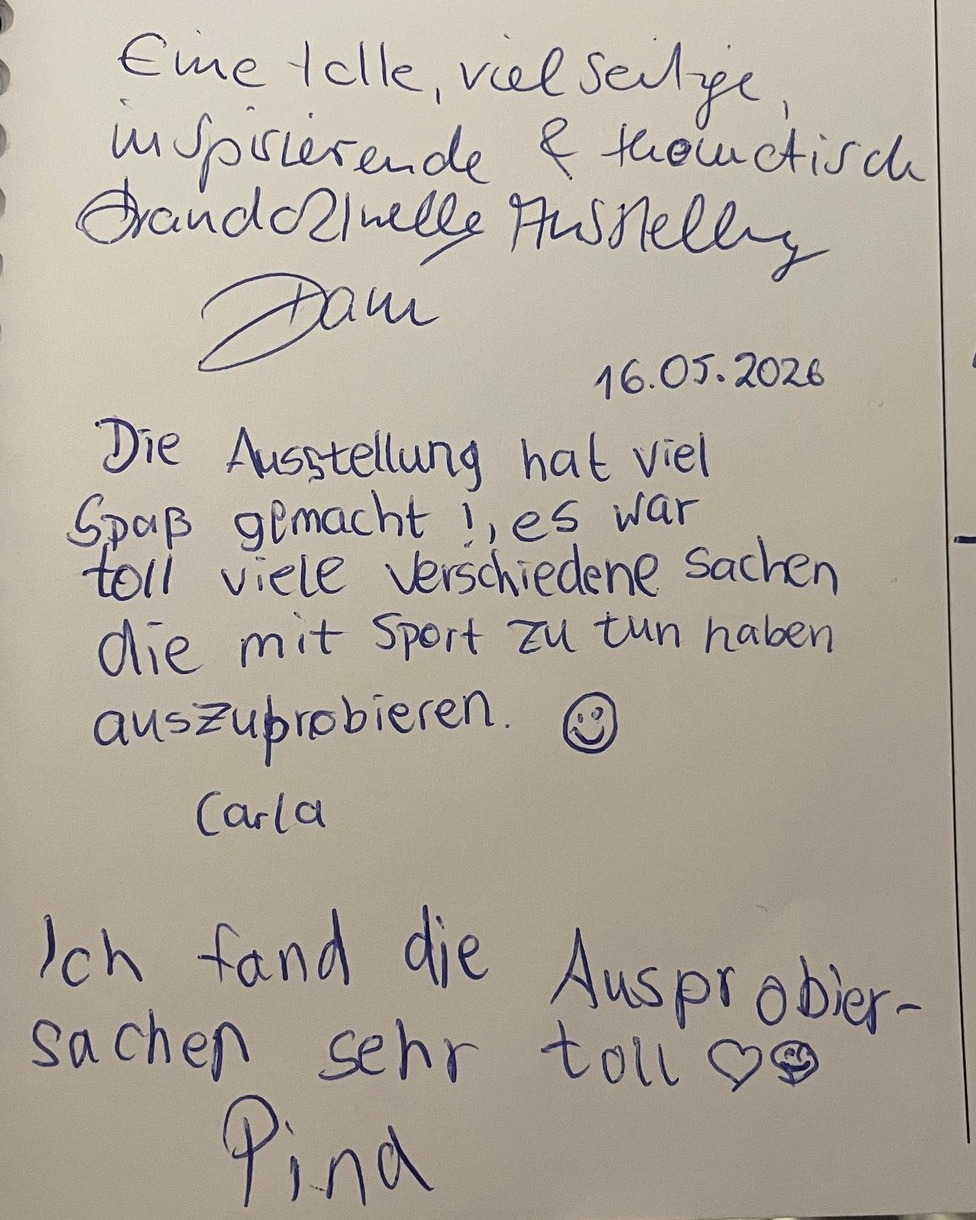 Eine tolle, vielseitige,
inspirierende & thematisch
brandaktuelle Ausstellung
16.05.2026
Die Ausstellung hat viel
Spaß gemacht !, es war
toll viele verschiedene Sachen
die mit Sport zu tun haben
auszuprobieren. ☺
Carla
Ich fand die Ausprobier-
sachen sehr toll ♡☺
Pina